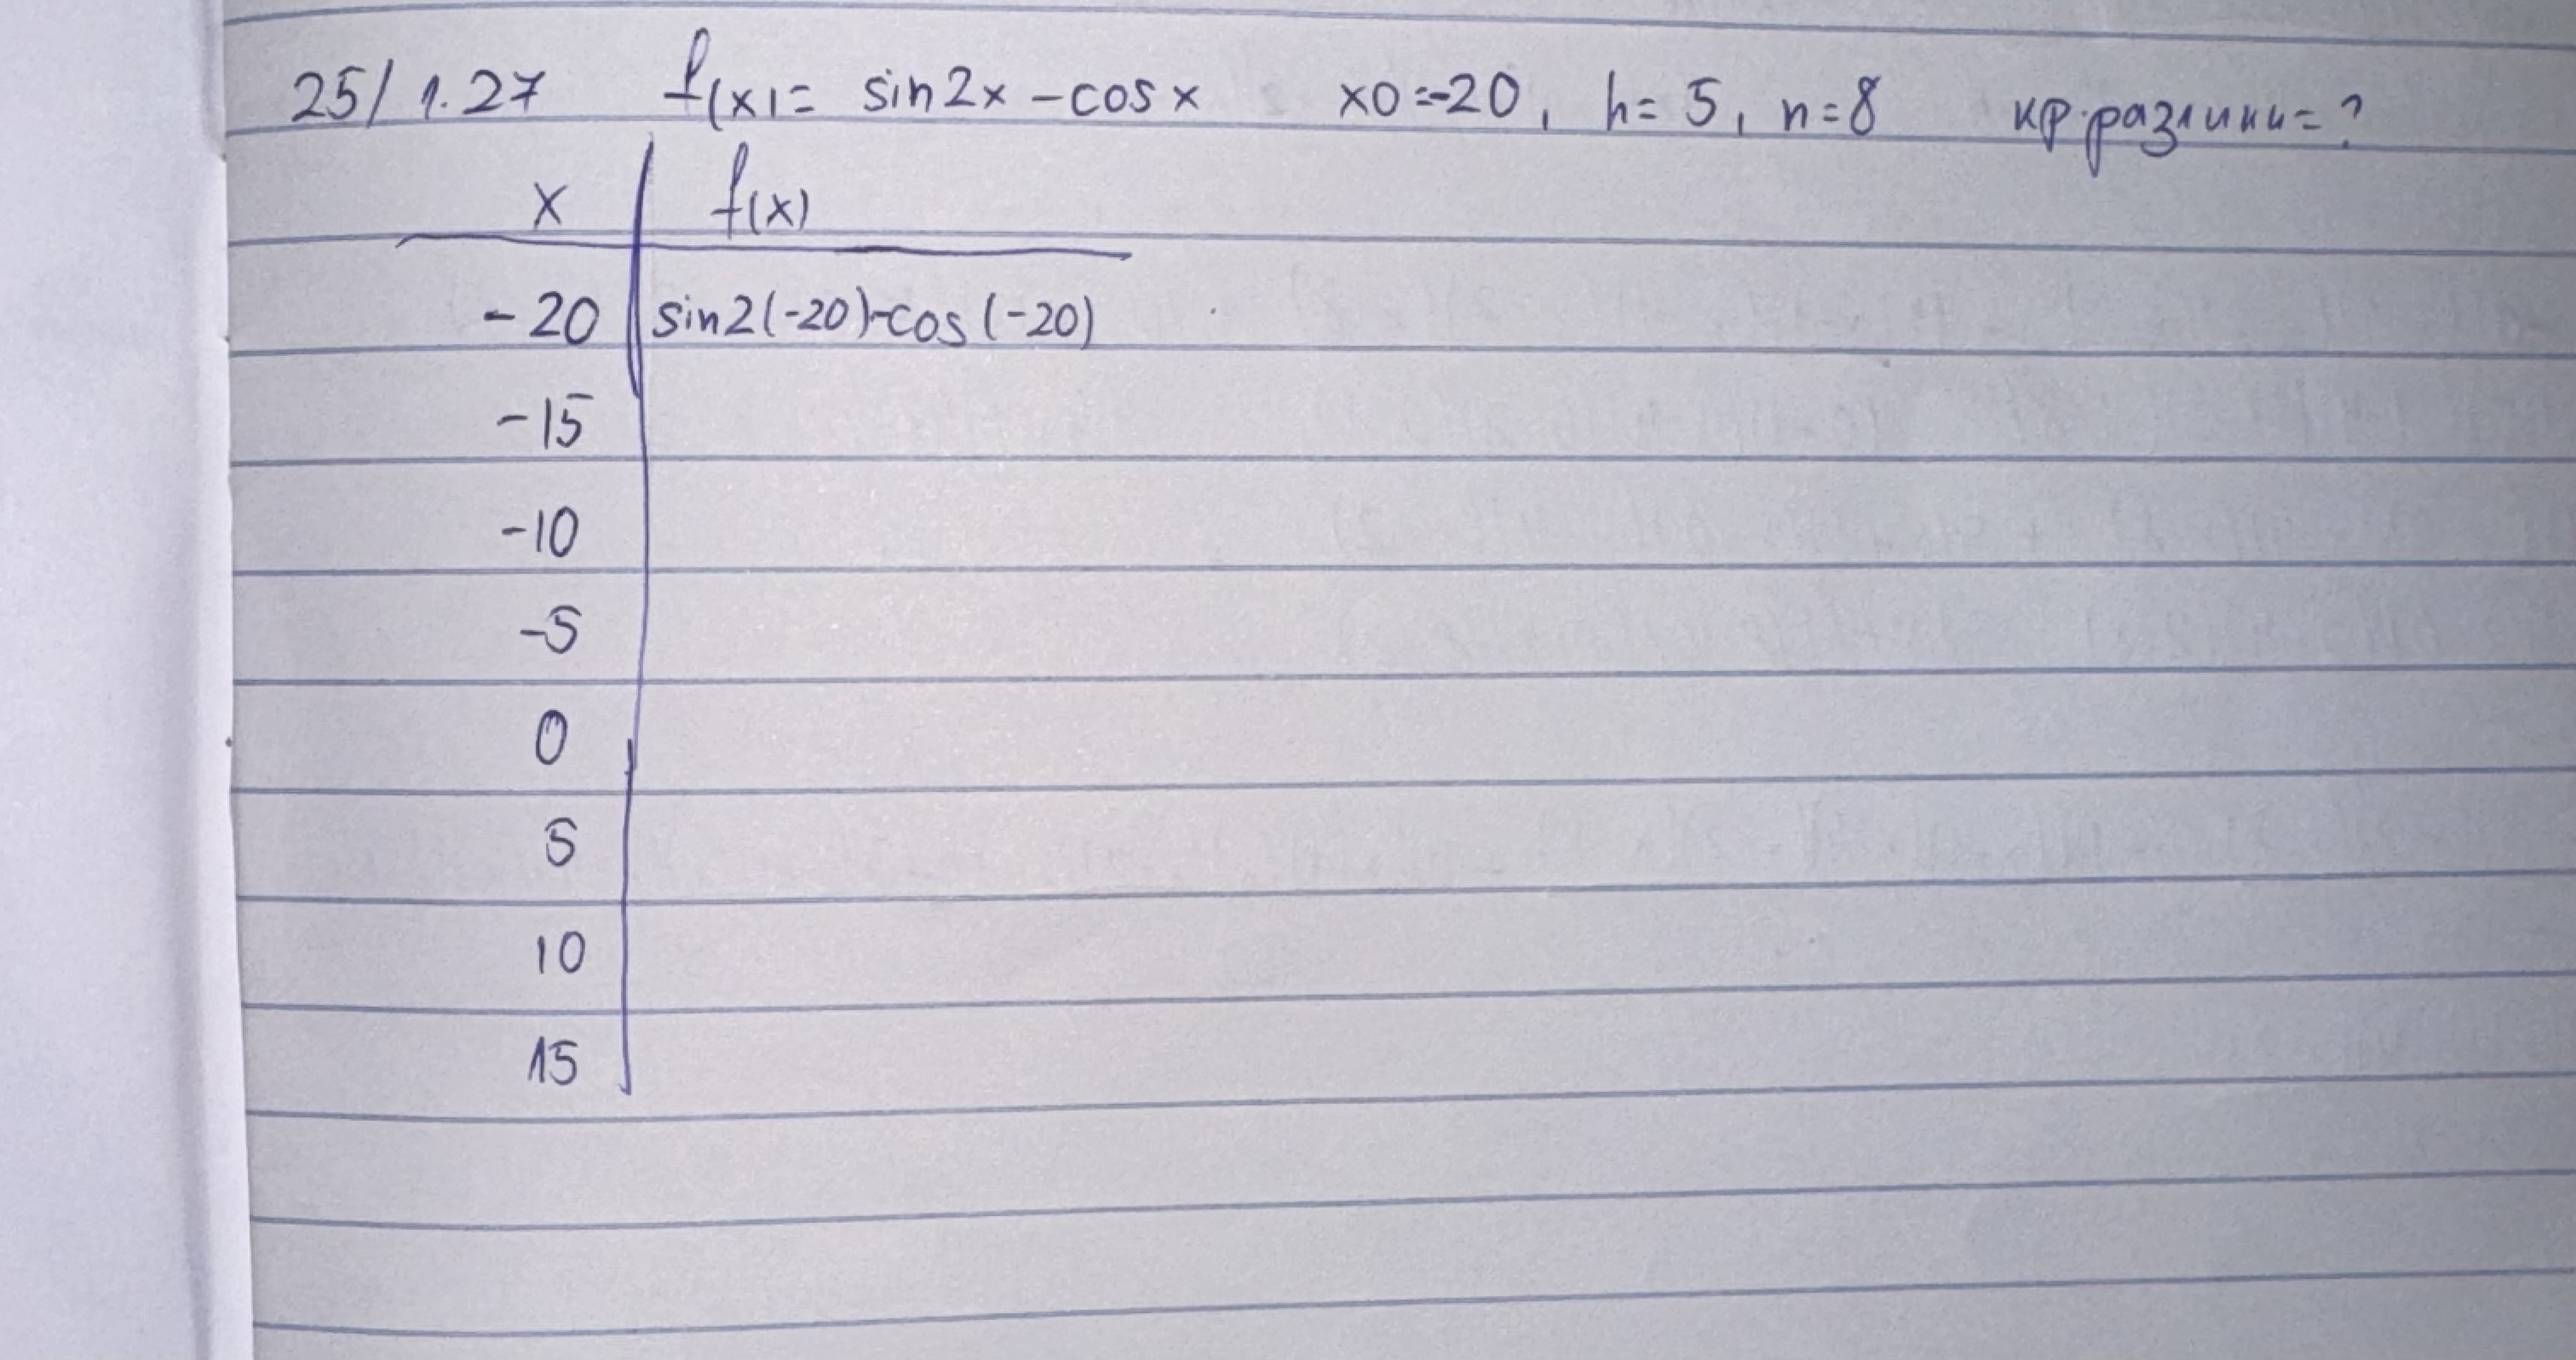 25/ 1.27 f(x)= sin2x -cosx x0=-20, h= 5, n=8 кр.разлики=?
x f(x)
-20 sin2(-20)-cos(-20)
-15
-10
-5
0
5
10
15